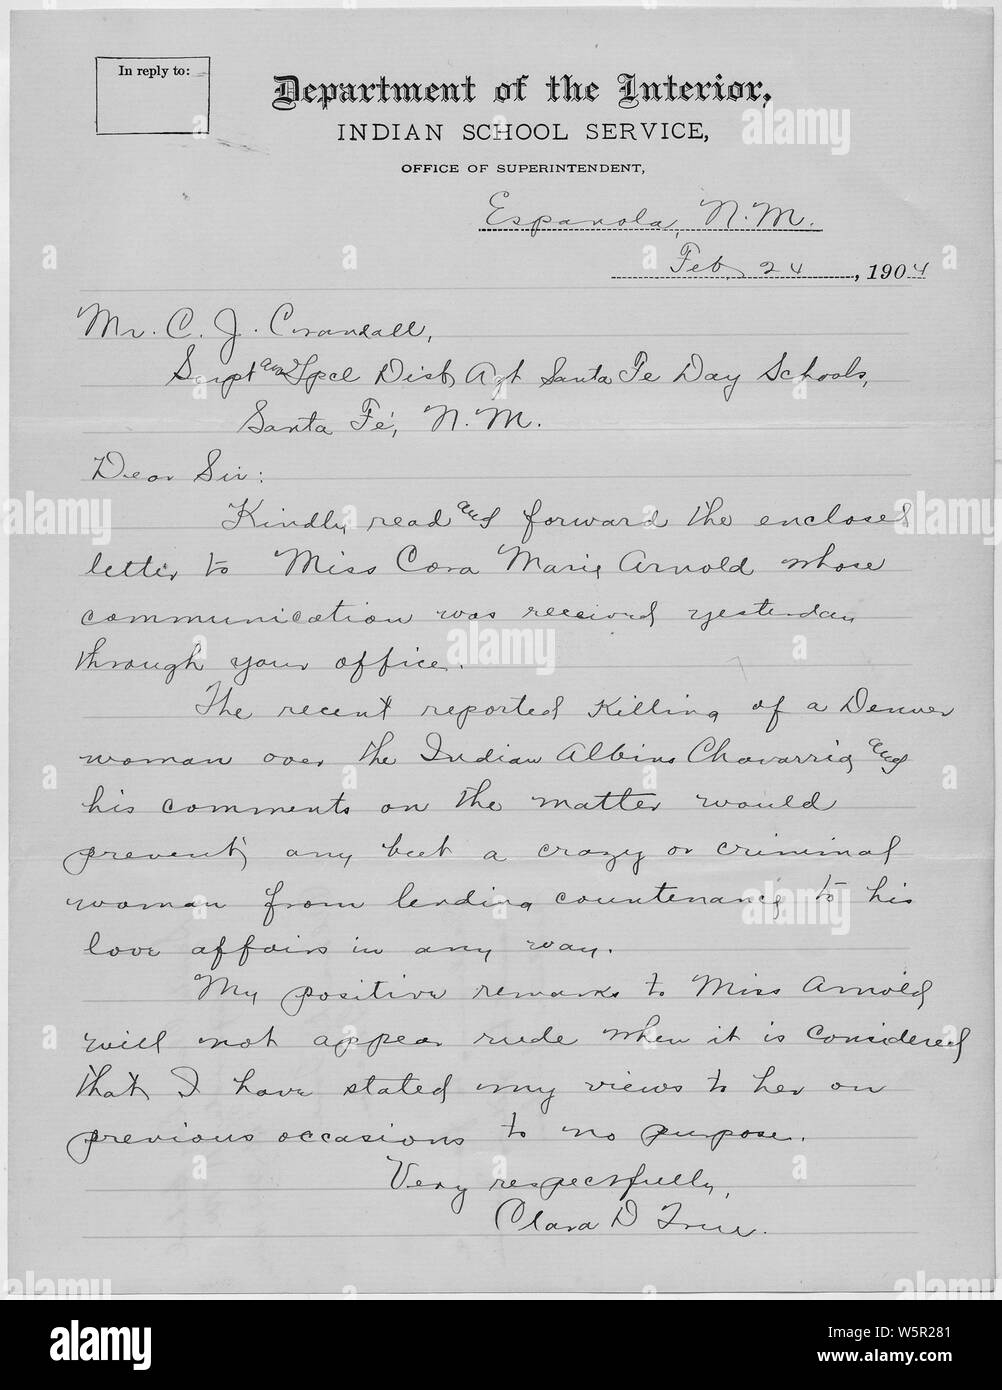 In reply to:
Department of the Interior,
INDIAN SCHOOL SERVICE,
OFFICE OF SUPERINTENDENT,
Espanola, N.M.
Feb 24, 1904
Mr. C. J. Crandall,
Supt and Spcl Disb Agt Santa Fe Day Schools,
Santa Fé, N.M.
Dear Sir:
Kindly read and forward the enclosed
letter to Miss Cora Marie Arnold whose
communication was received yesterday
through your office.
The recent reported killing of a Denver
woman over the Indian Albino Chavarria and
his comments on the matter would
prevent any but a crazy or criminal
woman from lending countenance to his
love affairs in any way.
My positive remarks to Miss Arnold
will not appear rude when it is considered
that I have stated my views to her on
previous occasions to no purpose.
Very respectfully,
Clara D True.
alamy
Image ID: W5R281
www.alamy.com